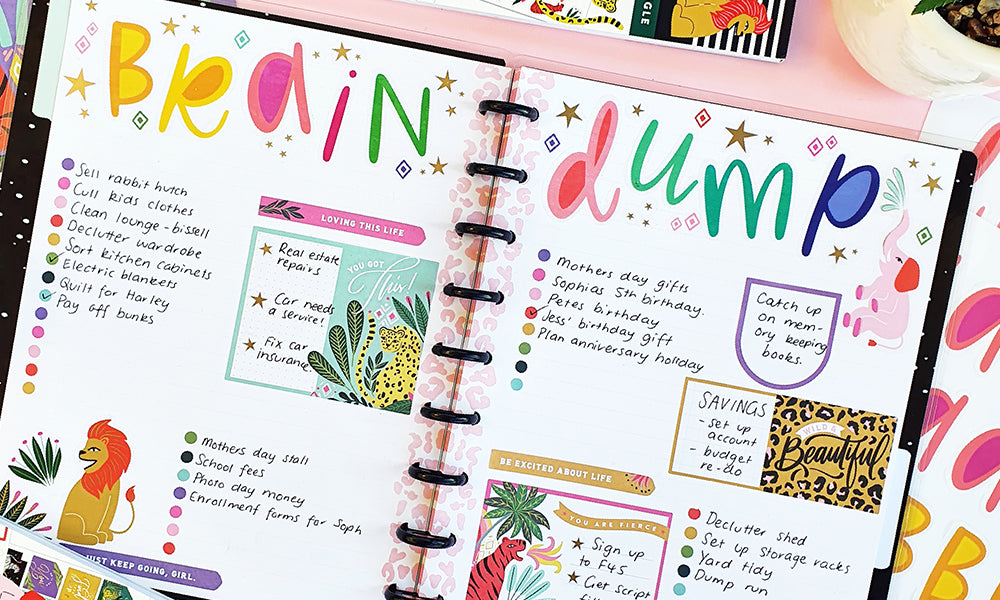 Brain
Sell rabbit hutch
Cull kids clothes
Clean lounge - bissell
Declutter wardrobe
Sort kitchen cabinets
Electric blankets
Quilt for Harley
Pay off bunks
LOVING THIS LIFE
Real estate
repairs
Car needs
a service!
Fix car
insurance
YOU GOT
This!
Mothers day stall
School fees
Photo day money
Enrollment forms for Soph
JUST KEEP GOING, GIRL.
dump
Mothers day gifts
Sophias 5th birthday.
Petes birthday
Jess' birthday gift
Plan anniversary holiday
Catch up
on mem-
ory keeping
books.
SAVINGS
- set up
account
- budget
re-do
WILD &
Beautiful
BE EXCITED ABOUT LIFE
YOU ARE FIERCE
Sign up
to F45
Get script
Declutter shed
Set up storage racks
Yard tidy
Dump run